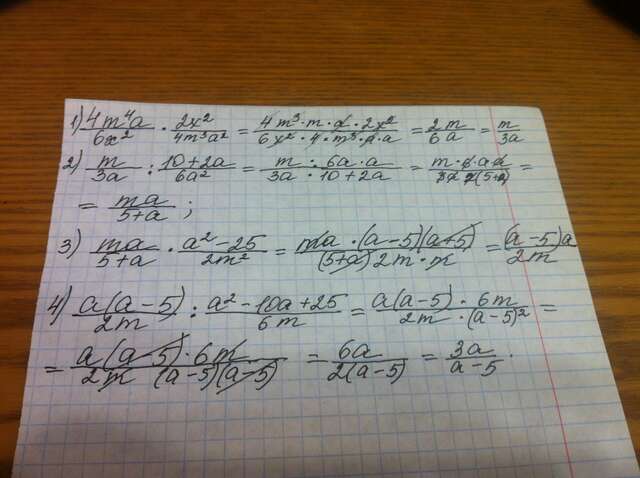 1) 4m⁴a/6x² · 2x²/4m³a² = 4m³·m·a·2x²/6x²·4·m³·a·a = 2m/6a = m/3a
2) m/3a : 10+2a/6a² = m · 6a·a/3a · 10+2a = m·6·a·a/3a·2(5+a) =
= ma/5+a ;
3) ma/5+a · a²-25/2m² = ma·(a-5)(a+5)/(5+a)2m·m = (a-5)a/2m
4) a(a-5)/2m : a²-10a+25/6m = a(a-5)·6m/2m·(a-5)² =
= a(a-5)·6m/2m (a-5)(a-5) = 6a/2(a-5) = 3a/a-5 .